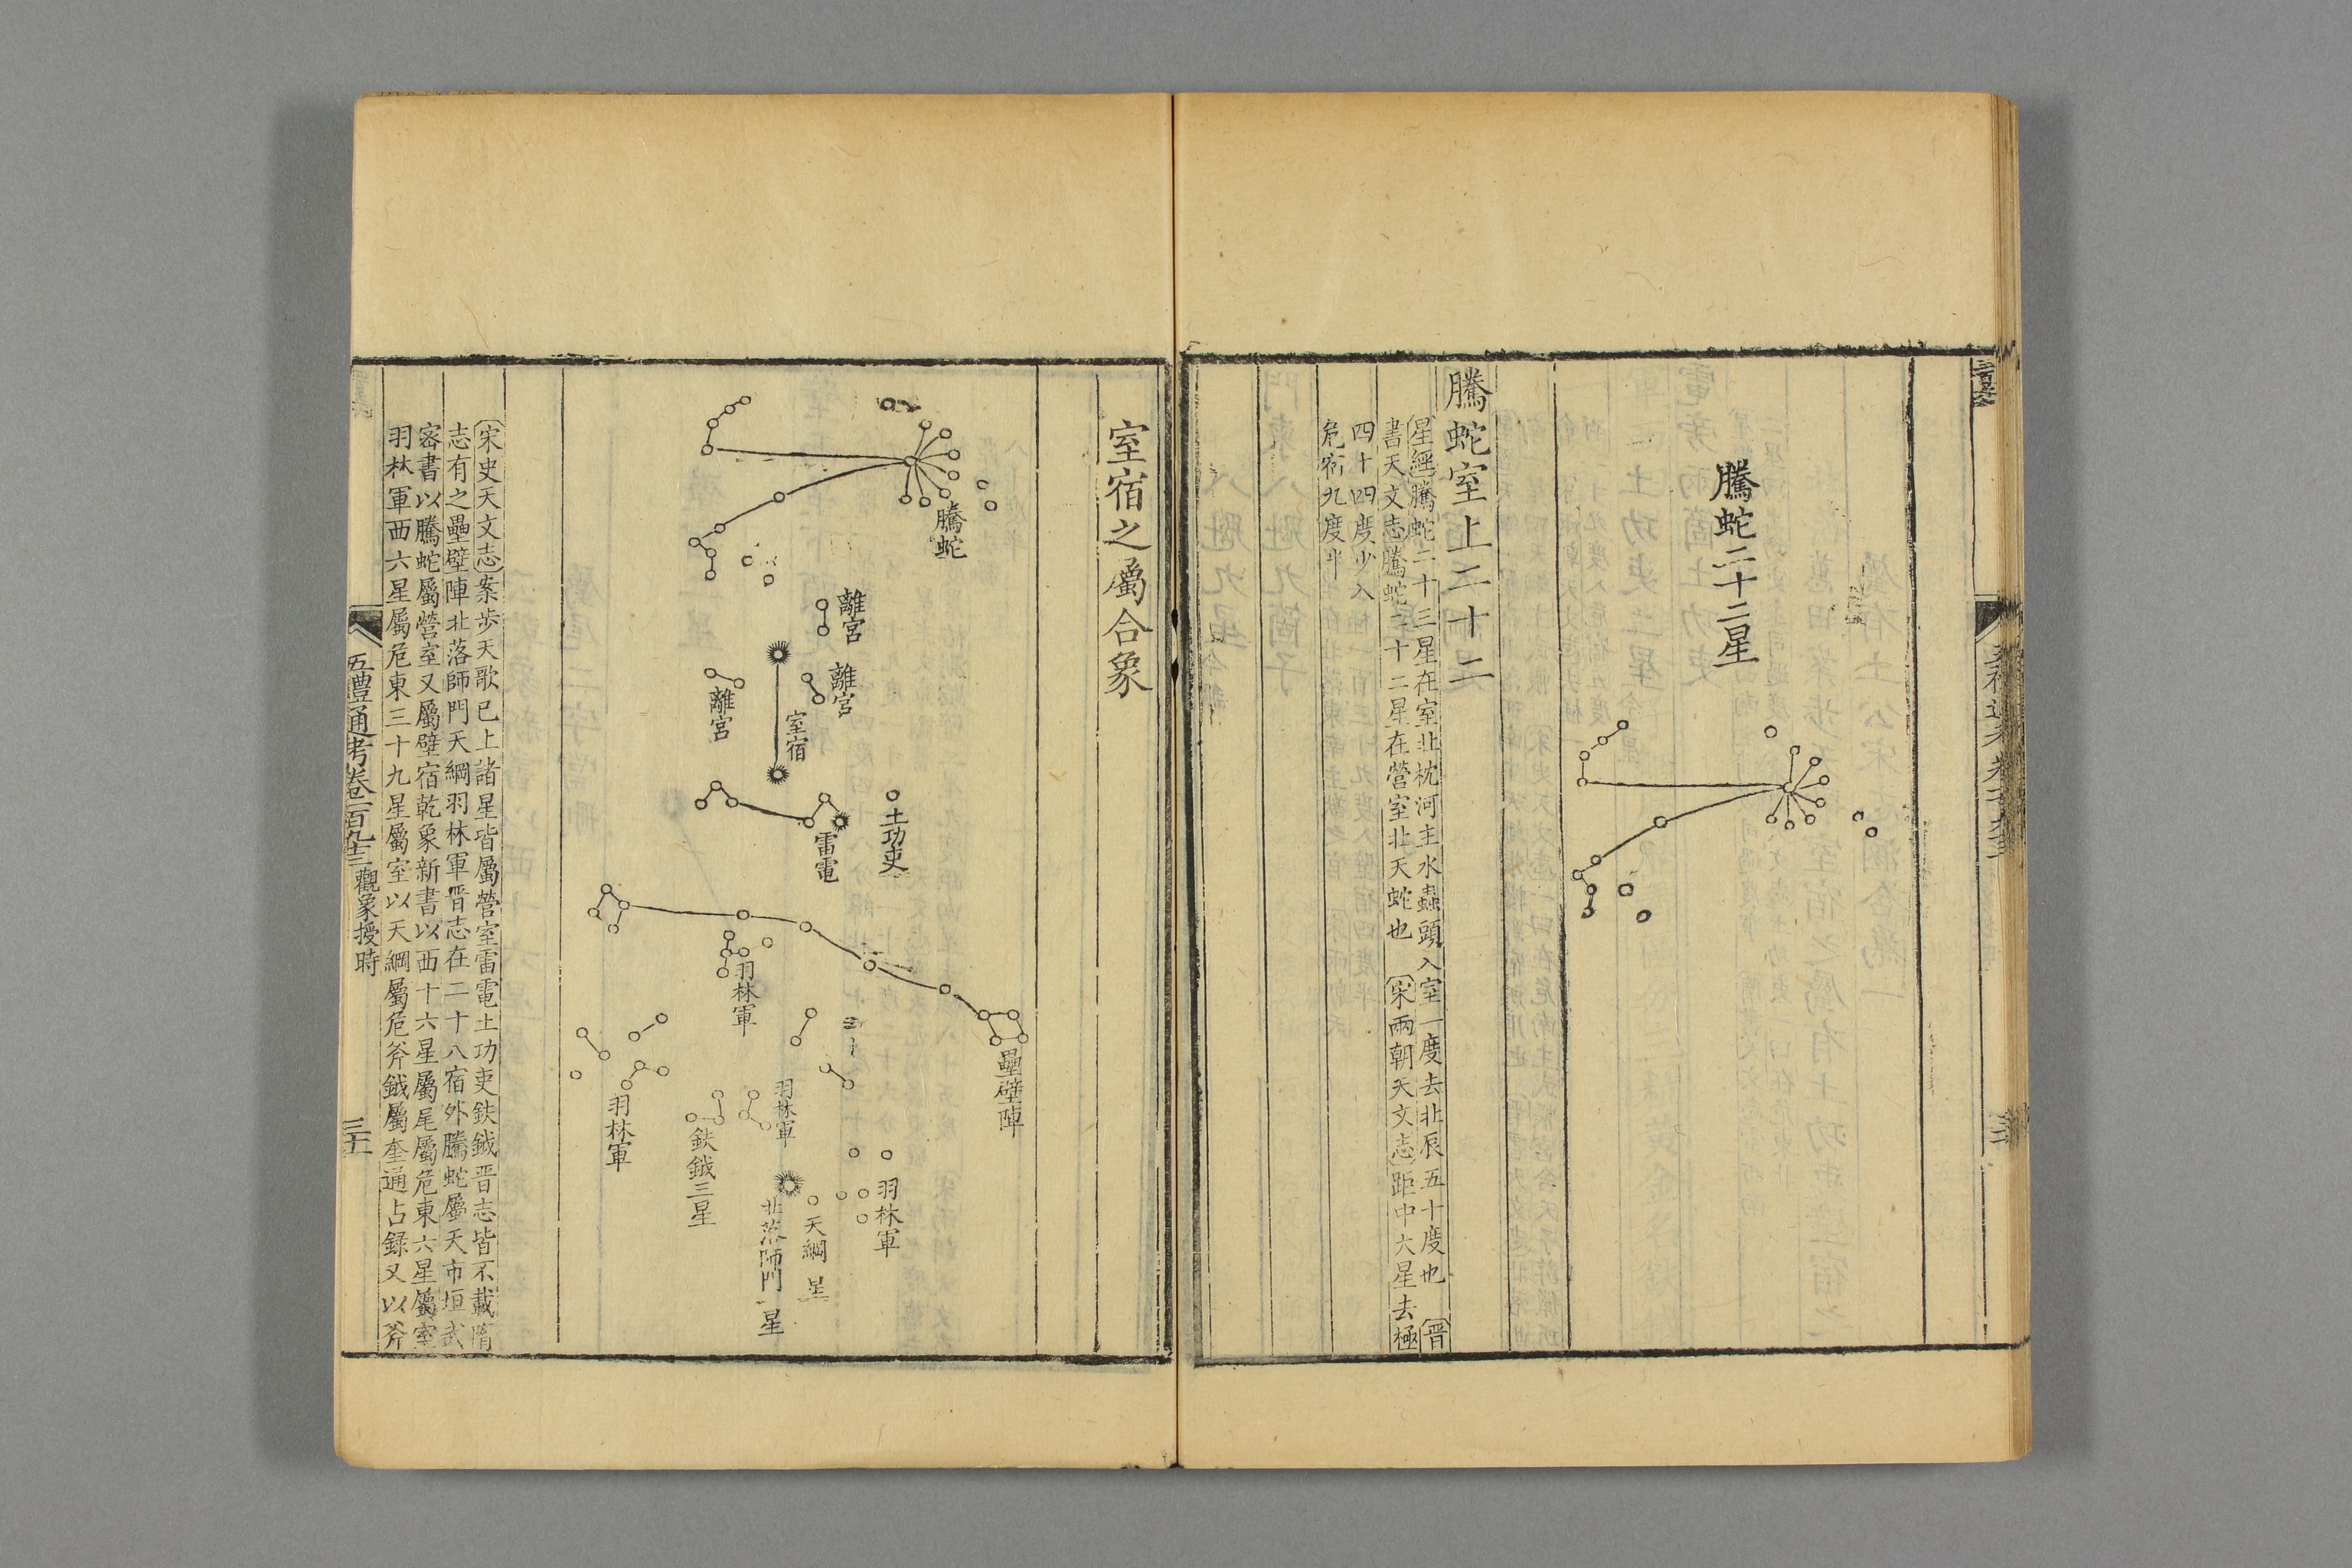 騰蛇二十二星
騰蛇室上二十二
星經騰蛇二十三星在室北枕河主水蟲頭入室一度去北辰五十度也 晉
書天文志騰蛇二十二星在營室北天蛇也 宋兩朝天文志距中大星去極
四十四度少入
危宿九度半
室宿之屬合象
騰蛇
離宮
離宮
離宮
室宿
土功吏
雷電
羽林軍
壘壁陣
羽林軍
羽林軍
鈇鉞三星
羽林軍
天綱
北落師門一星
宋史天文志案步天歌已上諸星皆屬營室雷電土功吏鈇鉞晋志皆不載隋
志有之壘壁陣北落師門天綱羽林軍晋志在二十八宿外騰蛇屬天市垣武
密書以騰蛇屬營室又屬壁宿乾象新書以西十六星屬尾屬危東六星屬室
羽林軍西六星屬危東三十九星屬室以天綱屬危斧鉞屬奎通占録又以斧
五禮通考卷一百九十三 觀象授時